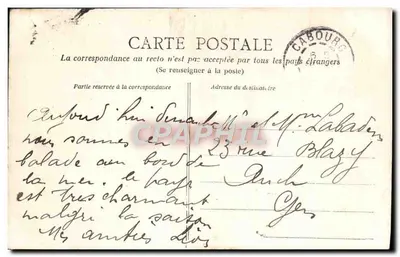 CARTE POSTALE
CABOURG
La correspondance au recto n'est pas acceptée par tous les pays étrangers
(Se renseigner à la poste)
Partie réservée à la correspondance
Adresse du destinataire
Aujourd'hui dimanche
nous sommes en
balade au bord de
la mer. le pays
est très charmant
malgré la saison
Mes amitiés Léon
Mr et Mme
23 rue Blazy
Auch
Gers